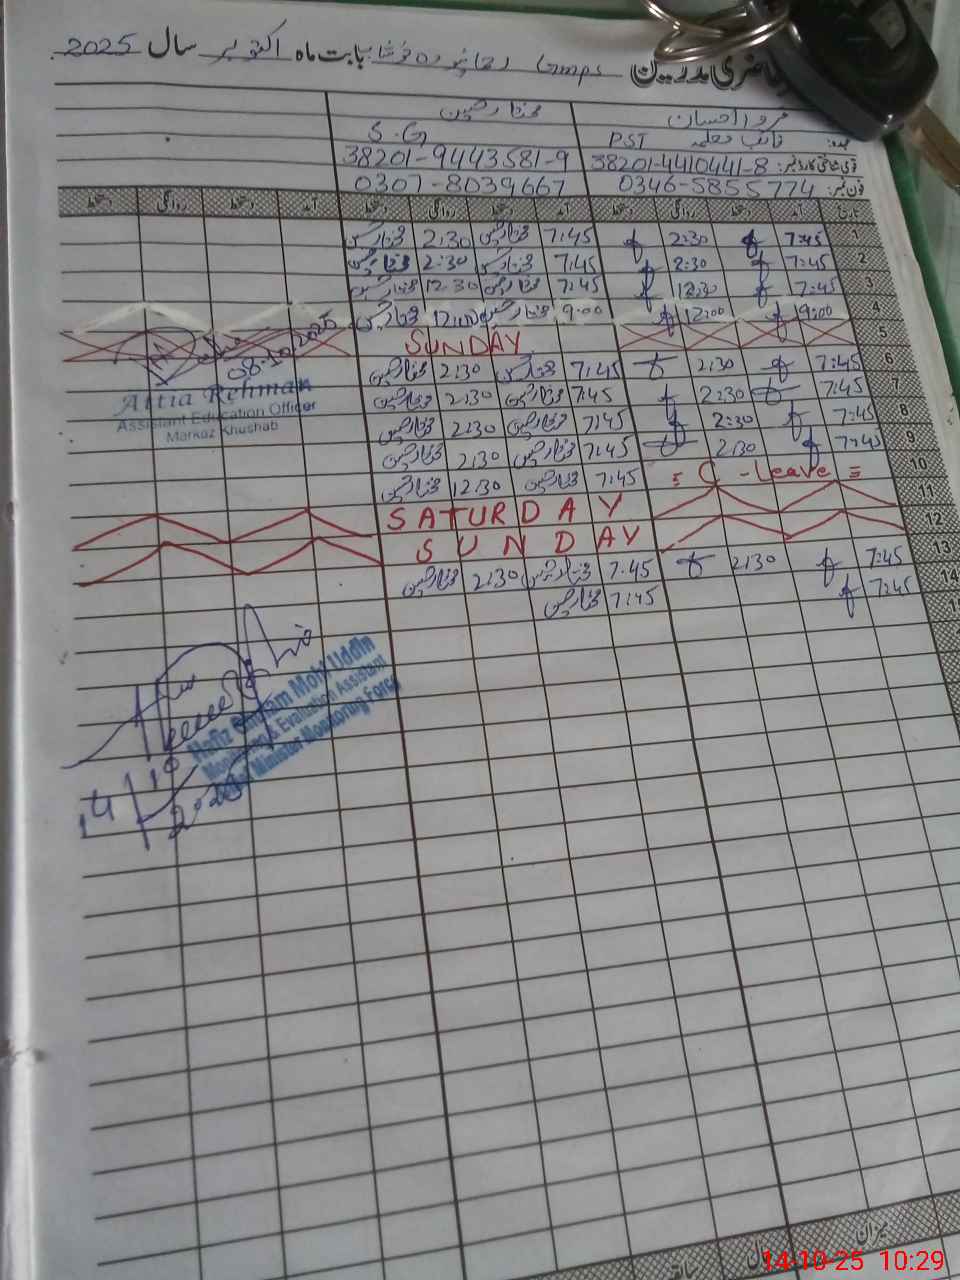 حاضری مدرسین Gmps بابت ماہ اکتوبر سال 2025
مختار حسین
S.G PST نائب معلمہ عہدہ:
38201-9443581-9 38201-4410441-8 قومی شناختی کارڈ نمبر:
0307-8039667 0346-5855774 فون نمبر:
تاریخ آمد دستخط روانگی دستخط آمد دستخط روانگی دستخط آمد دستخط روانگی دستخط
1 7:45 2:30 7:45 مختار حسین 2:30 مختار حسین
2 7:45 2:30 7:45 مختار حسین 2:30 مختار حسین
3 7:45 12:30 7:45 مختار حسین 12:30 مختار حسین
4 9:00 12:00 9:00 مختار حسین 12:00 مختار حسین
5 SUNDAY
6 7:45 2:30 7:45 مختار حسین 2:30 مختار حسین
7 7:45 2:30 7:45 مختار حسین 2:30 مختار حسین
8 7:45 2:30 7:45 مختار حسین 2:30 مختار حسین
9 7:45 2:30 7:45 مختار حسین 2:30 مختار حسین
10 = C - Leave = 7:45 مختار حسین 12:30 مختار حسین
11 SATURDAY
12 SUNDAY
13 7:45 2:30 7:45 مختار حسین 2:30 مختار حسین
14 7:45 7:45 مختار حسین
15
08-10-2025
Attia Rehman
Assistant Education Officer
Markaz Khushab
Hafiz Ghulam Mohi Uddin
Monitoring & Evaluation Assistant
Chief Minister Monitoring Force
14/10
2025
میزان
14-10-25 10:29